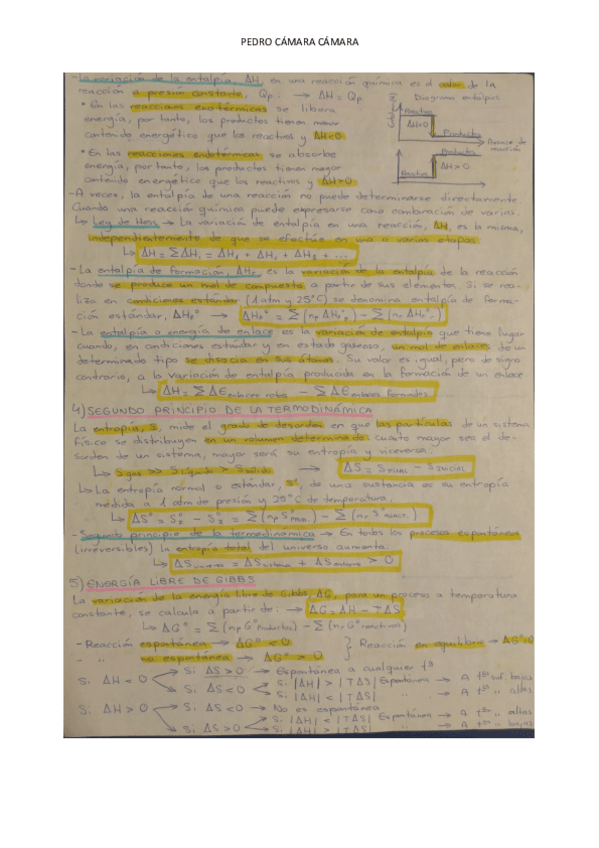 PEDRO CÁMARA CÁMARA
-La variación de la entalpía, ΔH, en una reacción química es el calor de la
reacción a presión constante, Qp: → ΔH = Qp
Diagrama entálpico
• En las reacciones exotérmicas se libera
energía, por tanto, los productos tienen menor
contenido energético que los reactivos y ΔH<0.
Reactivos
ΔH<0
Productos
Avance de
reacción
• En las reacciones endotérmicas se absorbe
energía, por tanto, los productos tienen mayor
contenido energético que los reactivos y ΔH>0
Productos
ΔH>0
Reactivos
-A veces, la entalpía de una reacción no puede determinarse directamente
Cuando una reacción química puede expresarse como combinación de varias.
↳ Ley de Hess → La variación de entalpía en una reacción, ΔH, es la misma,
independientemente de que se efectúe en una o varias etapas
↳ ΔH = ΣΔHᵢ = ΔH₁ + ΔH₂ + ΔH₃ + ...
-La entalpía de formación, ΔHf, es la variación de la entalpía de la reacción
donde se produce un mol de compuesto a partir de sus elementos. Si se rea-
liza en condiciones estándar (1 atm y 25°C) se denomina entalpía de forma-
ción estándar, ΔHf° → ΔHr° = Σ(np ΔH°p) − Σ(nr ΔH°r)
-La entalpía o energía de enlace es la variación de entalpía que tiene lugar
cuando, en condiciones estándar y en estado gaseoso, un mol de enlaces de un
determinado tipo se disocia en sus átomos. Su valor es igual, pero de signo
contrario, a la variación de entalpía producida en la formación de un enlace
↳ ΔH = ΣΔE enlaces rotos − ΣΔE enlaces formados
4) SEGUNDO PRINCIPIO DE LA TERMODINÁMICA
La entropía, S, mide el grado de desorden en que las partículas de un sistema
físico se distribuyen en un volumen determinado cuanto mayor sea el de-
sorden de un sistema, mayor será su entropía y viceversa.
↳ Sgas >> Slíquido > Ssólido → ΔS = SFINAL − SINICIAL
↳ La entropía normal o estándar, S°, de una sustancia es su entropía
medida a 1 atm de presión y 25°C de temperatura,
↳ ΔS° = S₂° − S₁° = Σ(np S°PROD.) − Σ(nr S°REACT.)
-Segundo principio de la termodinámica → En todos los procesos espontáneos
(irreversibles) la entropía total del universo aumenta.
↳ ΔSuniverso = ΔSsistema + ΔSentorno > 0
5) ENERGÍA LIBRE DE GIBBS
La variación de la energía libre de Gibbs, ΔG, para un proceso a temperatura
constante, se calcula a partir de: → ΔG = ΔH − TΔS
↳ ΔG° = Σ(np G°productos) − Σ(nr G°reactivos)
- Reacción espontánea → ΔG° < 0 } Reacción en equilibrio → ΔG°=0
- " no espontánea → ΔG° > 0
Si ΔH < 0
Si ΔS > 0 → Espontánea a cualquier tª
Si ΔS < 0 → Si |ΔH| > |TΔS| Espontánea → A tªs suf. bajas
Si |ΔH| < |TΔS| " → A tªs " altas
Si ΔH > 0
Si ΔS < 0 → No es espontánea
Si ΔS > 0 → Si |ΔH| < |TΔS| Espontánea → A tªs " altas
Si |ΔH| > |TΔS| " → A tªs " bajas